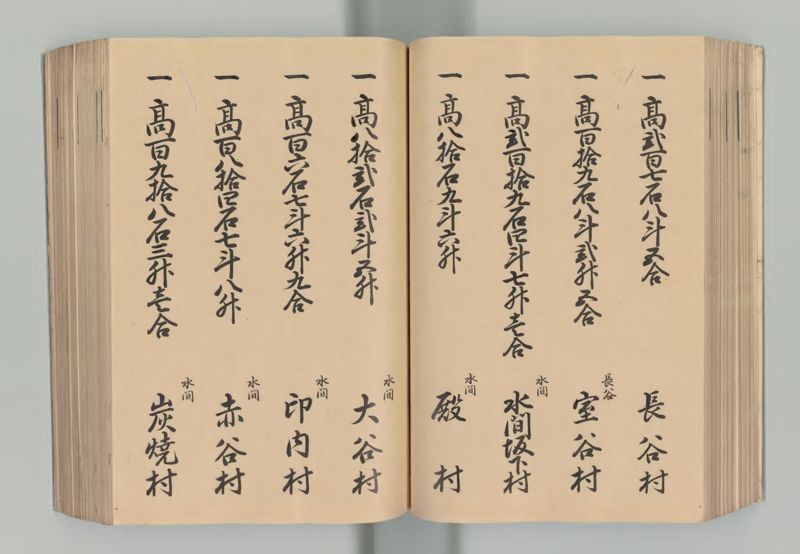 一 高弐百七石八斗五合 長谷村
一 高百拾九石八斗弐升五合 長谷 室谷村
一 高弐百拾九石四斗七升壱合 水间 水间坂下村
一 高八拾石九斗六升 水间 殿村
一 高八拾弐石弐斗五升 水间 大谷村
一 高百六石七斗六升九合 水间 印内村
一 高百八拾四石七斗八升 水间 赤谷村
一 高百九拾八石三升壱合 水间 炭焼村